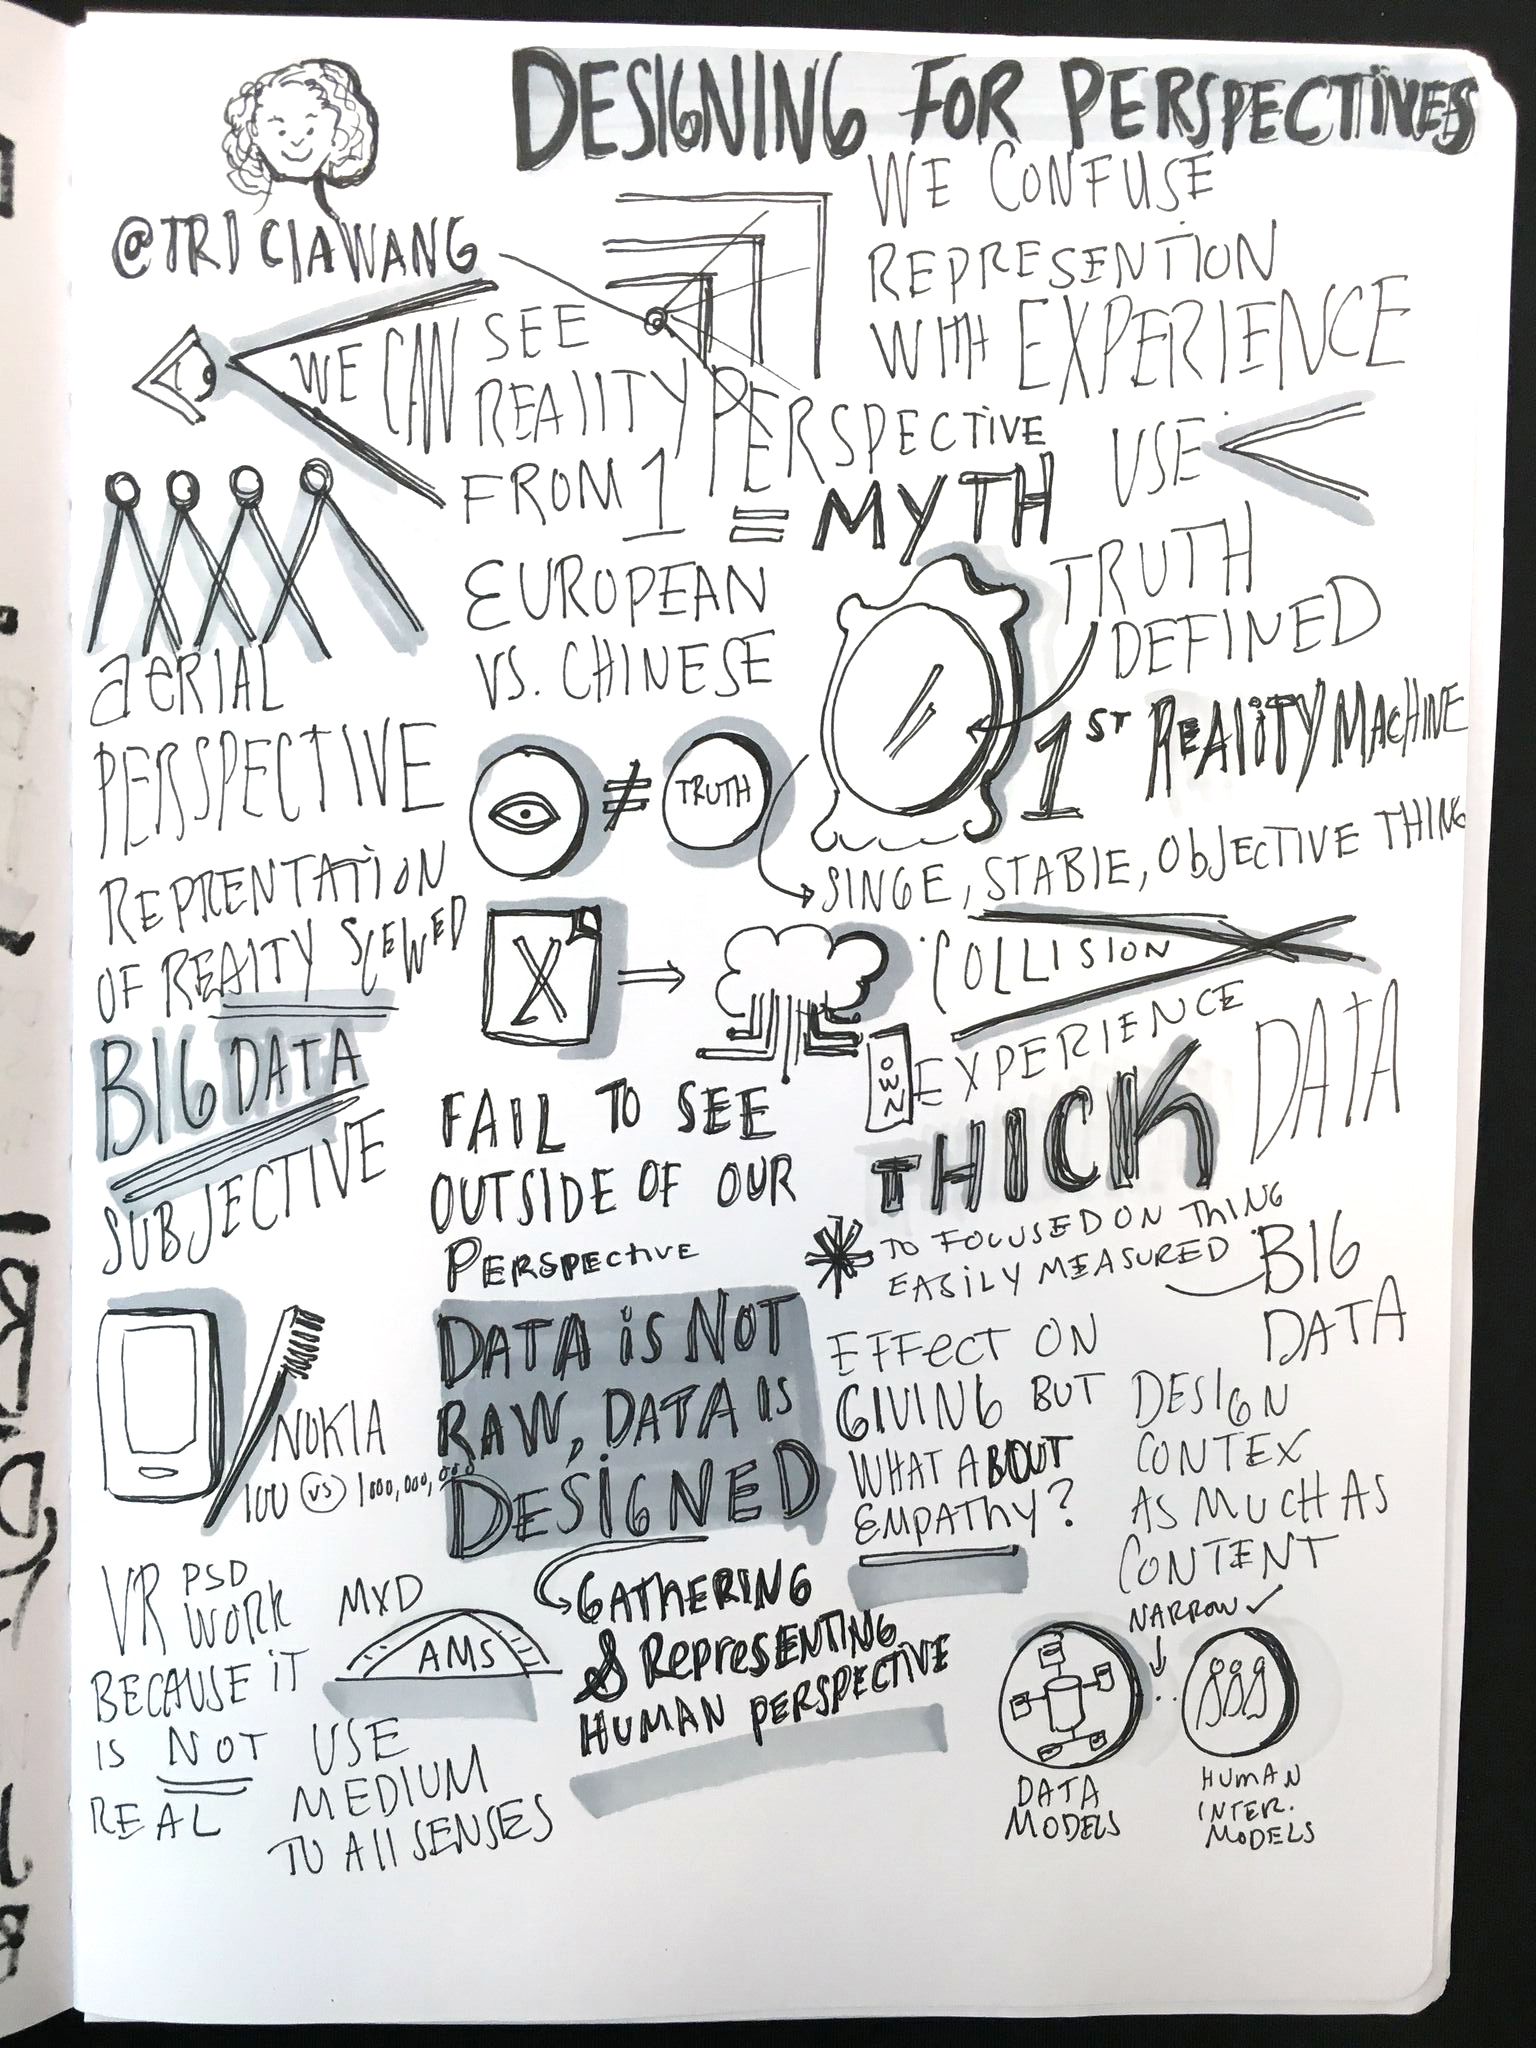 DESIGNING FOR PERSPECTIVES
@TRICIAWANG
WE CONFUSE
REPRESENTION
WITH EXPERIENCE
WE CAN SEE
REALITY
FROM 1 PERSPECTIVE
= MYTH
USE <
EUROPEAN
VS. CHINESE
TRUTH
DEFINED
1ST REALITY MACHINE
AERIAL
PERSPECTIVE
REPRENTATION
OF REALITY SCEWED
≠
TRUTH
SINGE, STABLE, OBJECTIVE THING
X
COLLISION
OWN
EXPERIENCE
BIG DATA
SUBJECTIVE
FAIL TO SEE
OUTSIDE OF OUR
PERSPECTIVE
THICK DATA
* TO FOCUSED ON THING
EASILY MEASURED
BIG
DATA
NOKIA
100 VS 1000,000,000
DATA IS NOT
RAW, DATA IS
DESIGNED
GATHERING
& REPRESENTING
HUMAN PERSPECTIVE
EFFECT ON
GIVING BUT
WHAT ABOUT
EMPATHY?
DESIGN
CONTEX
AS MUCH AS
CONTENT
VR PSD
WORK
BECAUSE IT
IS NOT
REAL
MXD
AMS
USE
MEDIUM
TO All SENSES
NARROW
DATA
MODELS
HUMAN
INTER.
MODELS